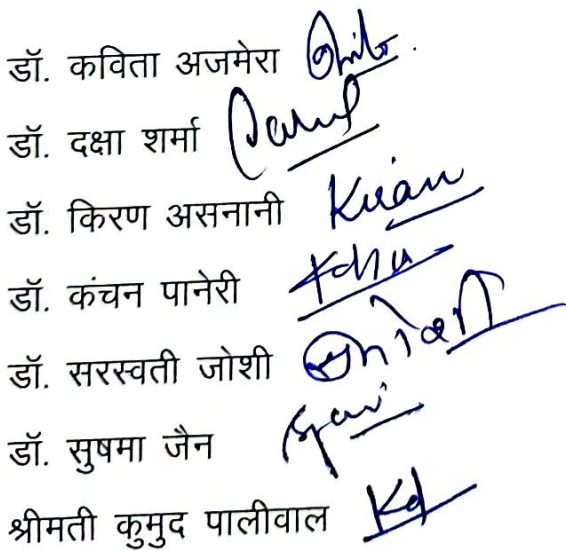 डॉ. कविता अजमेरा
डॉ. दक्षा शर्मा
डॉ. किरण असनानी Kiran
डॉ. कंचन पानेरी
डॉ. सरस्वती जोशी
डॉ. सुषमा जैन
श्रीमती कुमुद पालीवाल